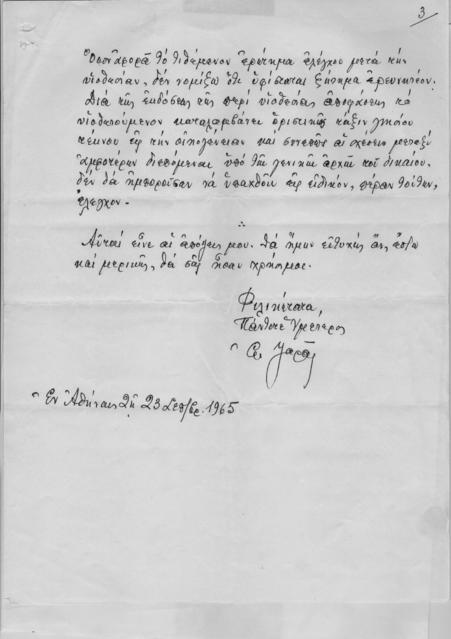 3
Ὅσον ἀφορᾶ τὸ τιθέμενον ἐρώτημα ἐλέγχου μετὰ τὴν
υἱοθεσίαν, δὲν νομίζω ὅτι ὑφίσταται ζήτημα ἐρευνητέον.
Διὰ τῆς ἐκδόσεως τῆς περὶ υἱοθεσίας ἀποφάσεως τὸ
υἱοθετούμενον καταλαμβάνει ὁριστικῶς τάξιν γνησίου
τέκνου εἰς τὴν οἰκογένειαν καὶ συνεπῶς αἱ σχέσεις μεταξὺ
ἀμφοτέρων διεπόμεναι ὑπὸ τῶν γενικῶν ἀρχῶν τοῦ δικαίου,
δὲν θὰ ἠμποροῦσαν νὰ ὑπαχθοῦν εἰς εἰδικόν, πέραν τούτων,
ἔλεγχον.
Αὗται εἶνε αἱ ἀπόψεις μου. Θὰ ἤμην εὐτυχὴς ἂν, ἔστω
καὶ μερικῶς, θὰ σᾶς ἦσαν χρήσιμοι.
Φιλικώτατα,
Πάντοτε Ὑμέτερος
Ἐν Ἀθήναις τῇ 23 Σεπ/βρ. 1965